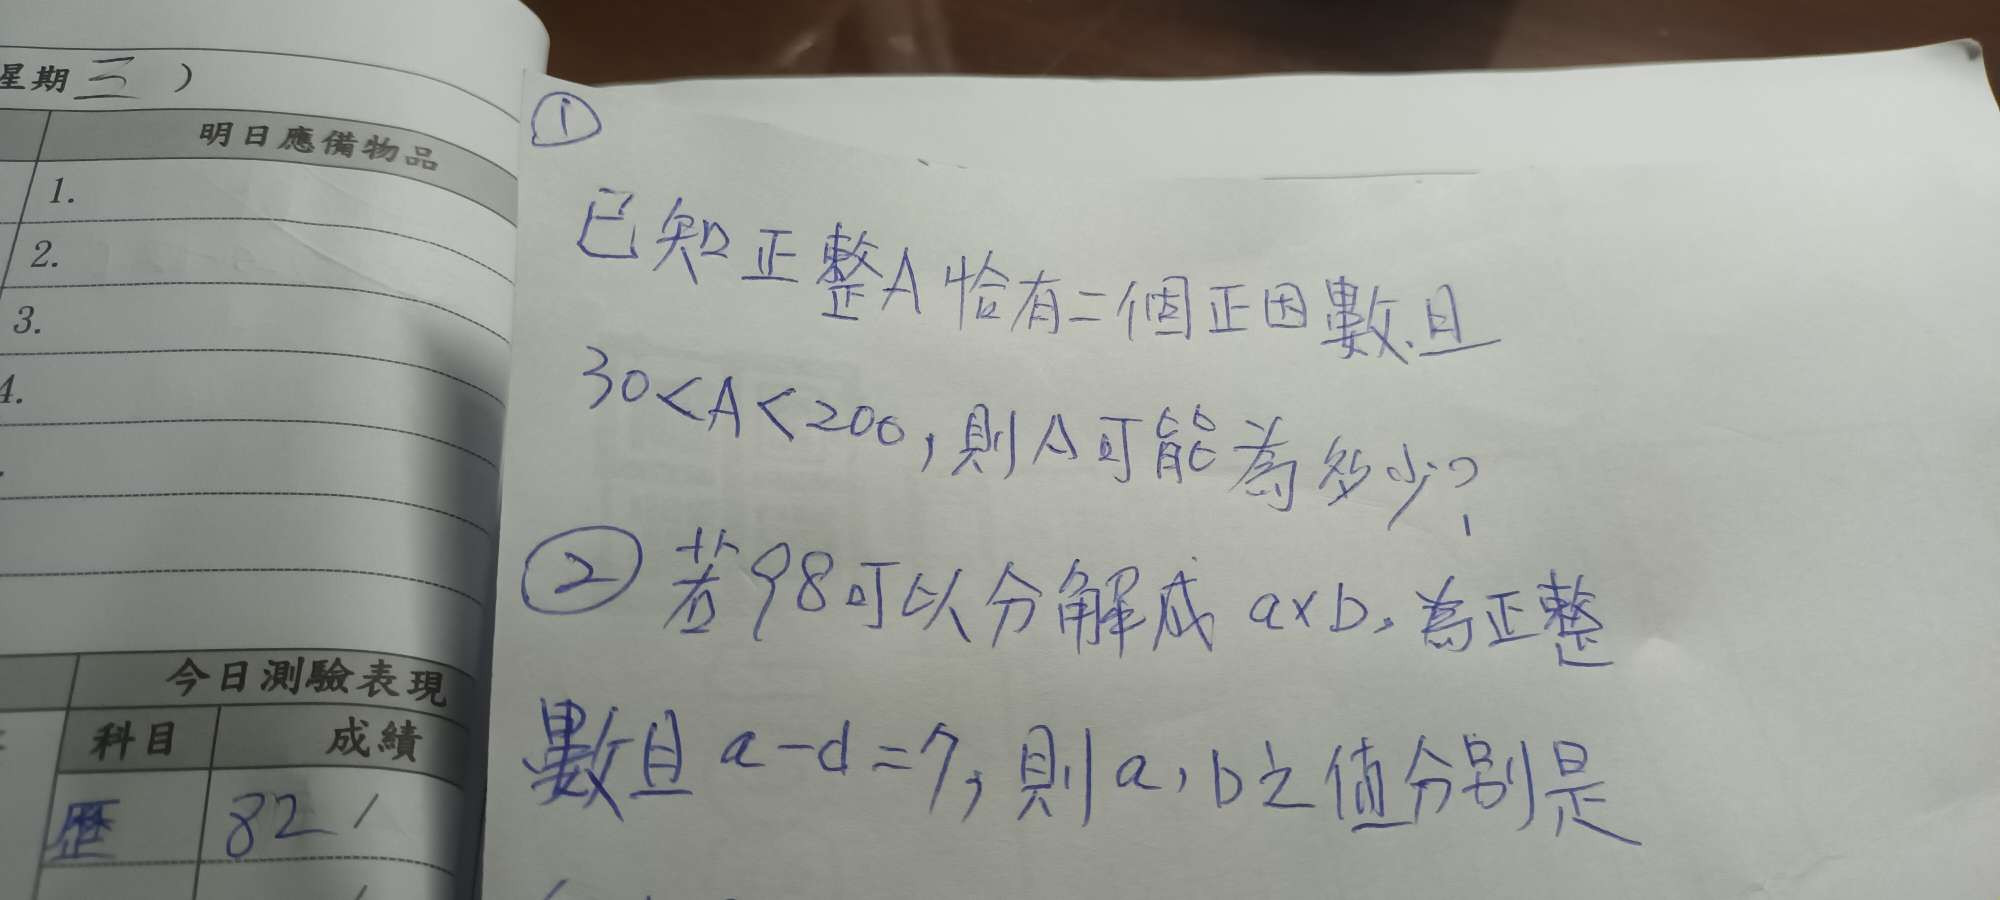 星期三)
明日應備物品
1.
2.
3.
4.
今日測驗表現
科目 成績
歷 82
①
已知正整A恰有二個正因數,且
30<A<200,則A可能為多少?
② 若98可以分解成 a×b,為正整
數且 a-d=7,則a,b之值分別是